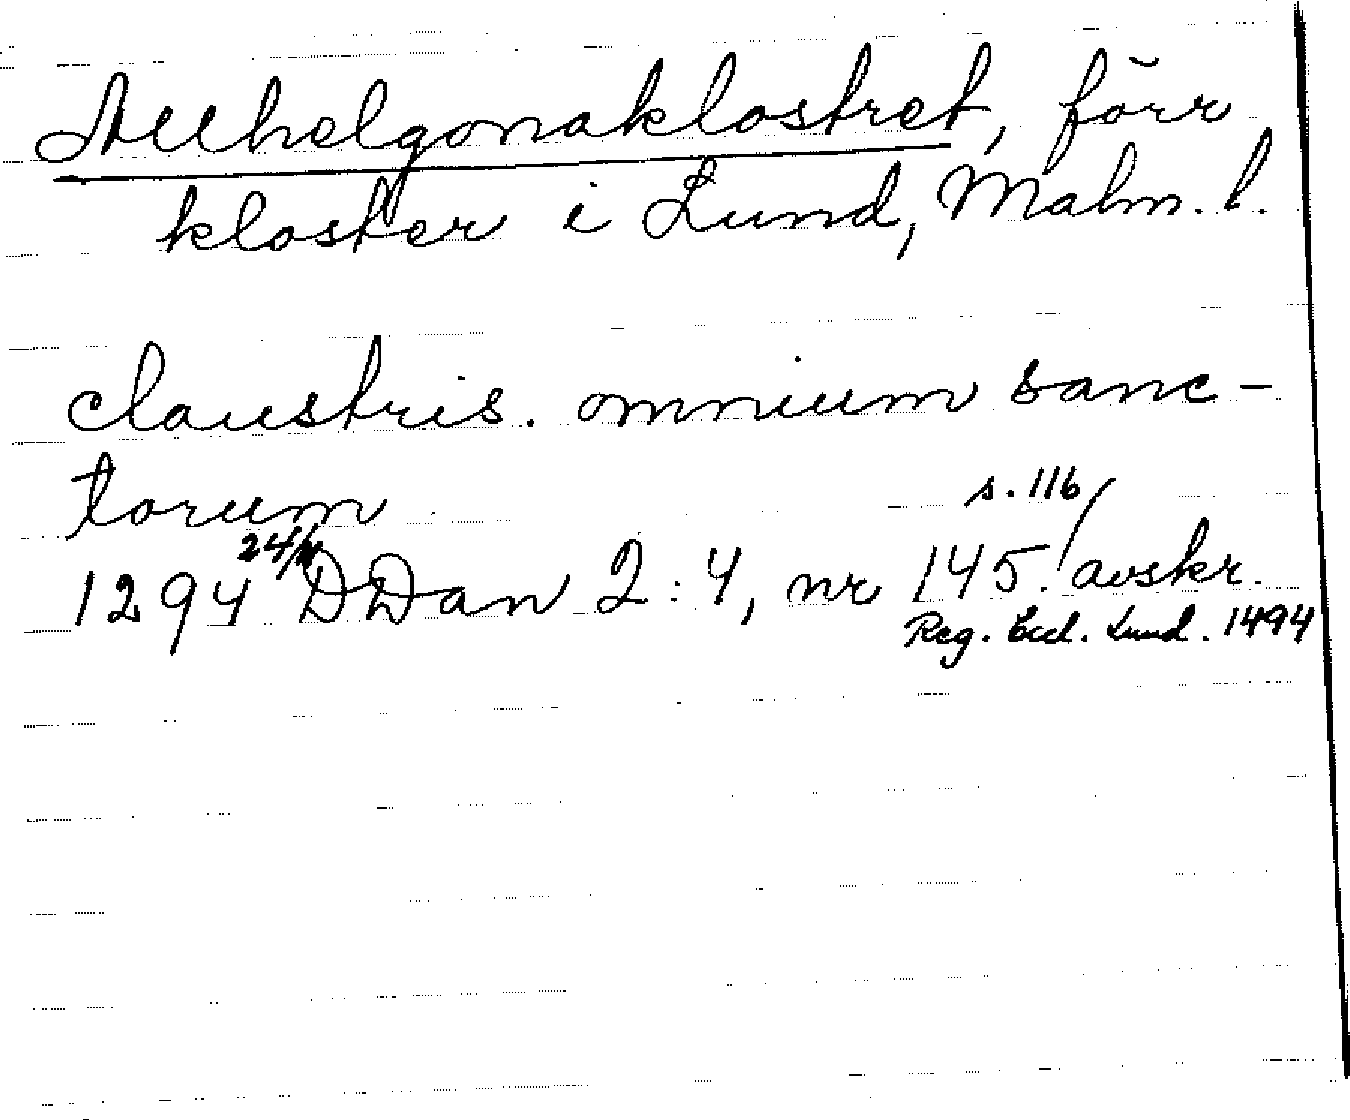 Allhelgonaklostret, förr
kloster i Lund, Malm. l.
claustris. omnium sanc-
torum
s. 116
1294 24/ DDan 2:4, nr 145. avskr.
Reg. Eccl. Lund. 1494